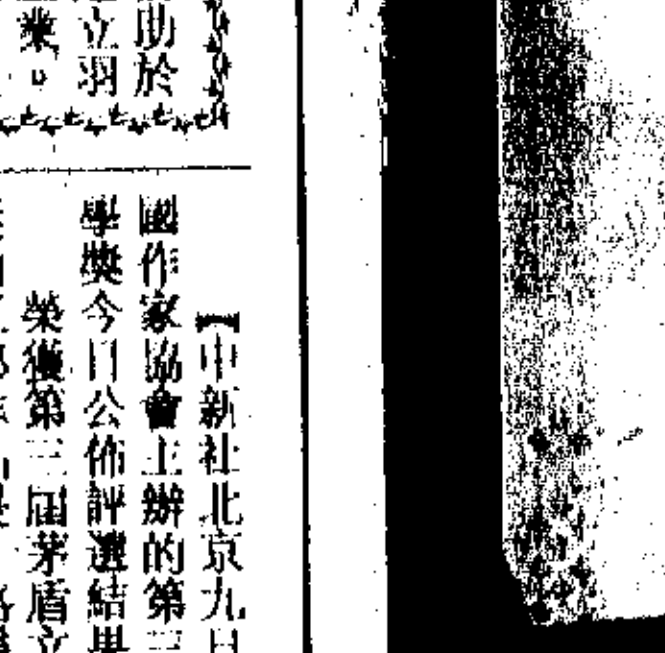 助於
立羽
業。
【中新社北京九日
國作家協會主辦的第三
學獎今日公佈評選結果
榮獲第三屆茅盾文